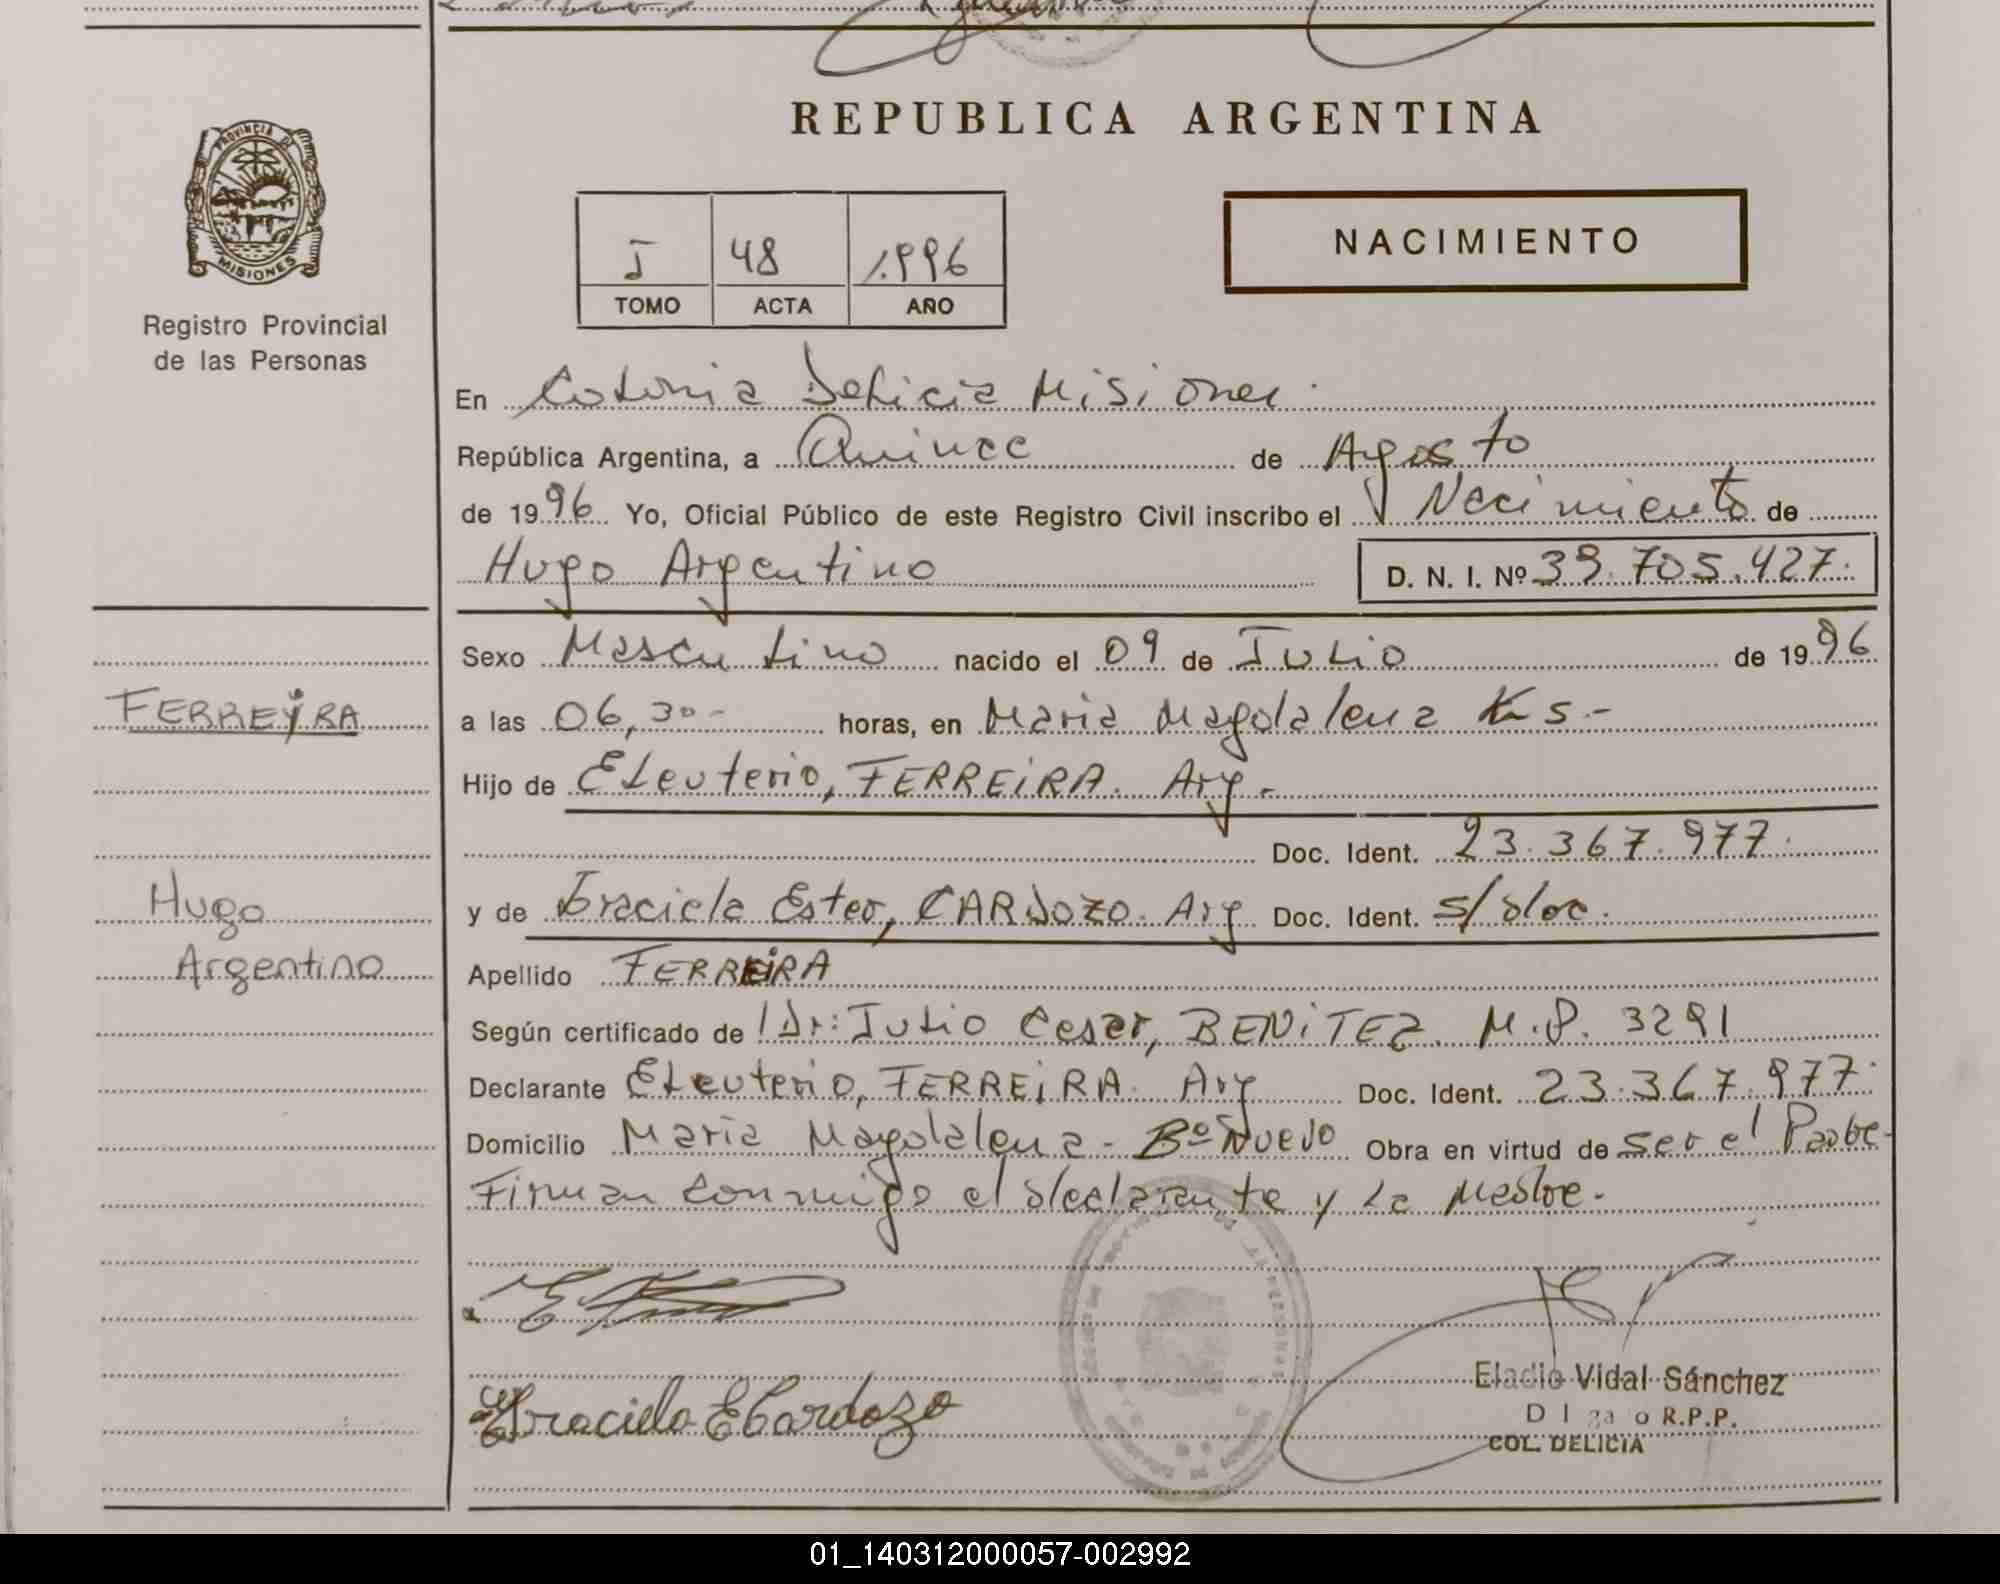 REPUBLICA ARGENTINA
PROVINCIA DE
MISIONES
Registro Provincial
de las Personas
I 48 1.996
TOMO ACTA AÑO
NACIMIENTO
En Colonia Delicia Misiones.
República Argentina, a Quince de Agosto
de 1996 Yo, Oficial Público de este Registro Civil inscribo el Nacimiento de
Hugo Argentino D. N. I. Nº 39.705.427.
Sexo Masculino nacido el 09 de Julio de 1996
FERREYRA
a las 06,30- horas, en Maria Magdalena Km 5.-
Hijo de Eleuterio, FERREIRA. Arg.-
Doc. Ident. 23.367.977.
Hugo
Argentino
y de Graciela Ester, CARDOZO. Arg Doc. Ident. s/doc.
Apellido FERREIRA
Según certificado de Dr: Julio Cesar, BENITEZ. M.P. 3291
Declarante Eleuterio, FERREIRA. Arg Doc. Ident. 23.367.977.
Domicilio Maria Magdalena - Bº Nuevo Obra en virtud de ser el Padre-
Firman conmigo el declarante y la Madre.
Graciela E Cardozo
Eladio Vidal Sánchez
R.P.P.
COL. DELICIA
01_140312000057-002992